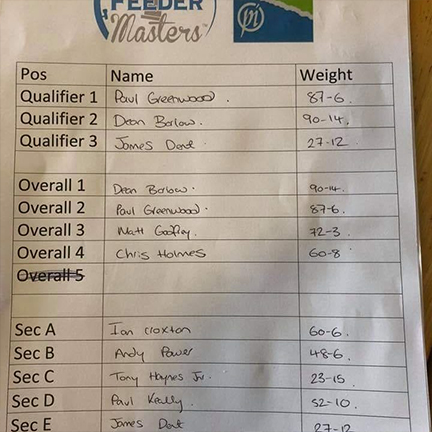 FEEDER
Masters™
pi
Pos Name Weight
Qualifier 1 Paul Greenwood. 87-6.
Qualifier 2 Dean Barlow. 90-14.
Qualifier 3 James Dent 27-12
Overall 1 Dean Barlow. 90-14.
Overall 2 Paul Greenwood. 87-6.
Overall 3 Matt Godfrey. 72-3.
Overall 4 Chris Holmes 60-8
Overall 5
Sec A Ian Croxton 60-6.
Sec B Andy Power 48-6.
Sec C Tony Haynes Jr. 23-15.
Sec D Paul Kealty. 52-10.
Sec E James Dent 27-12